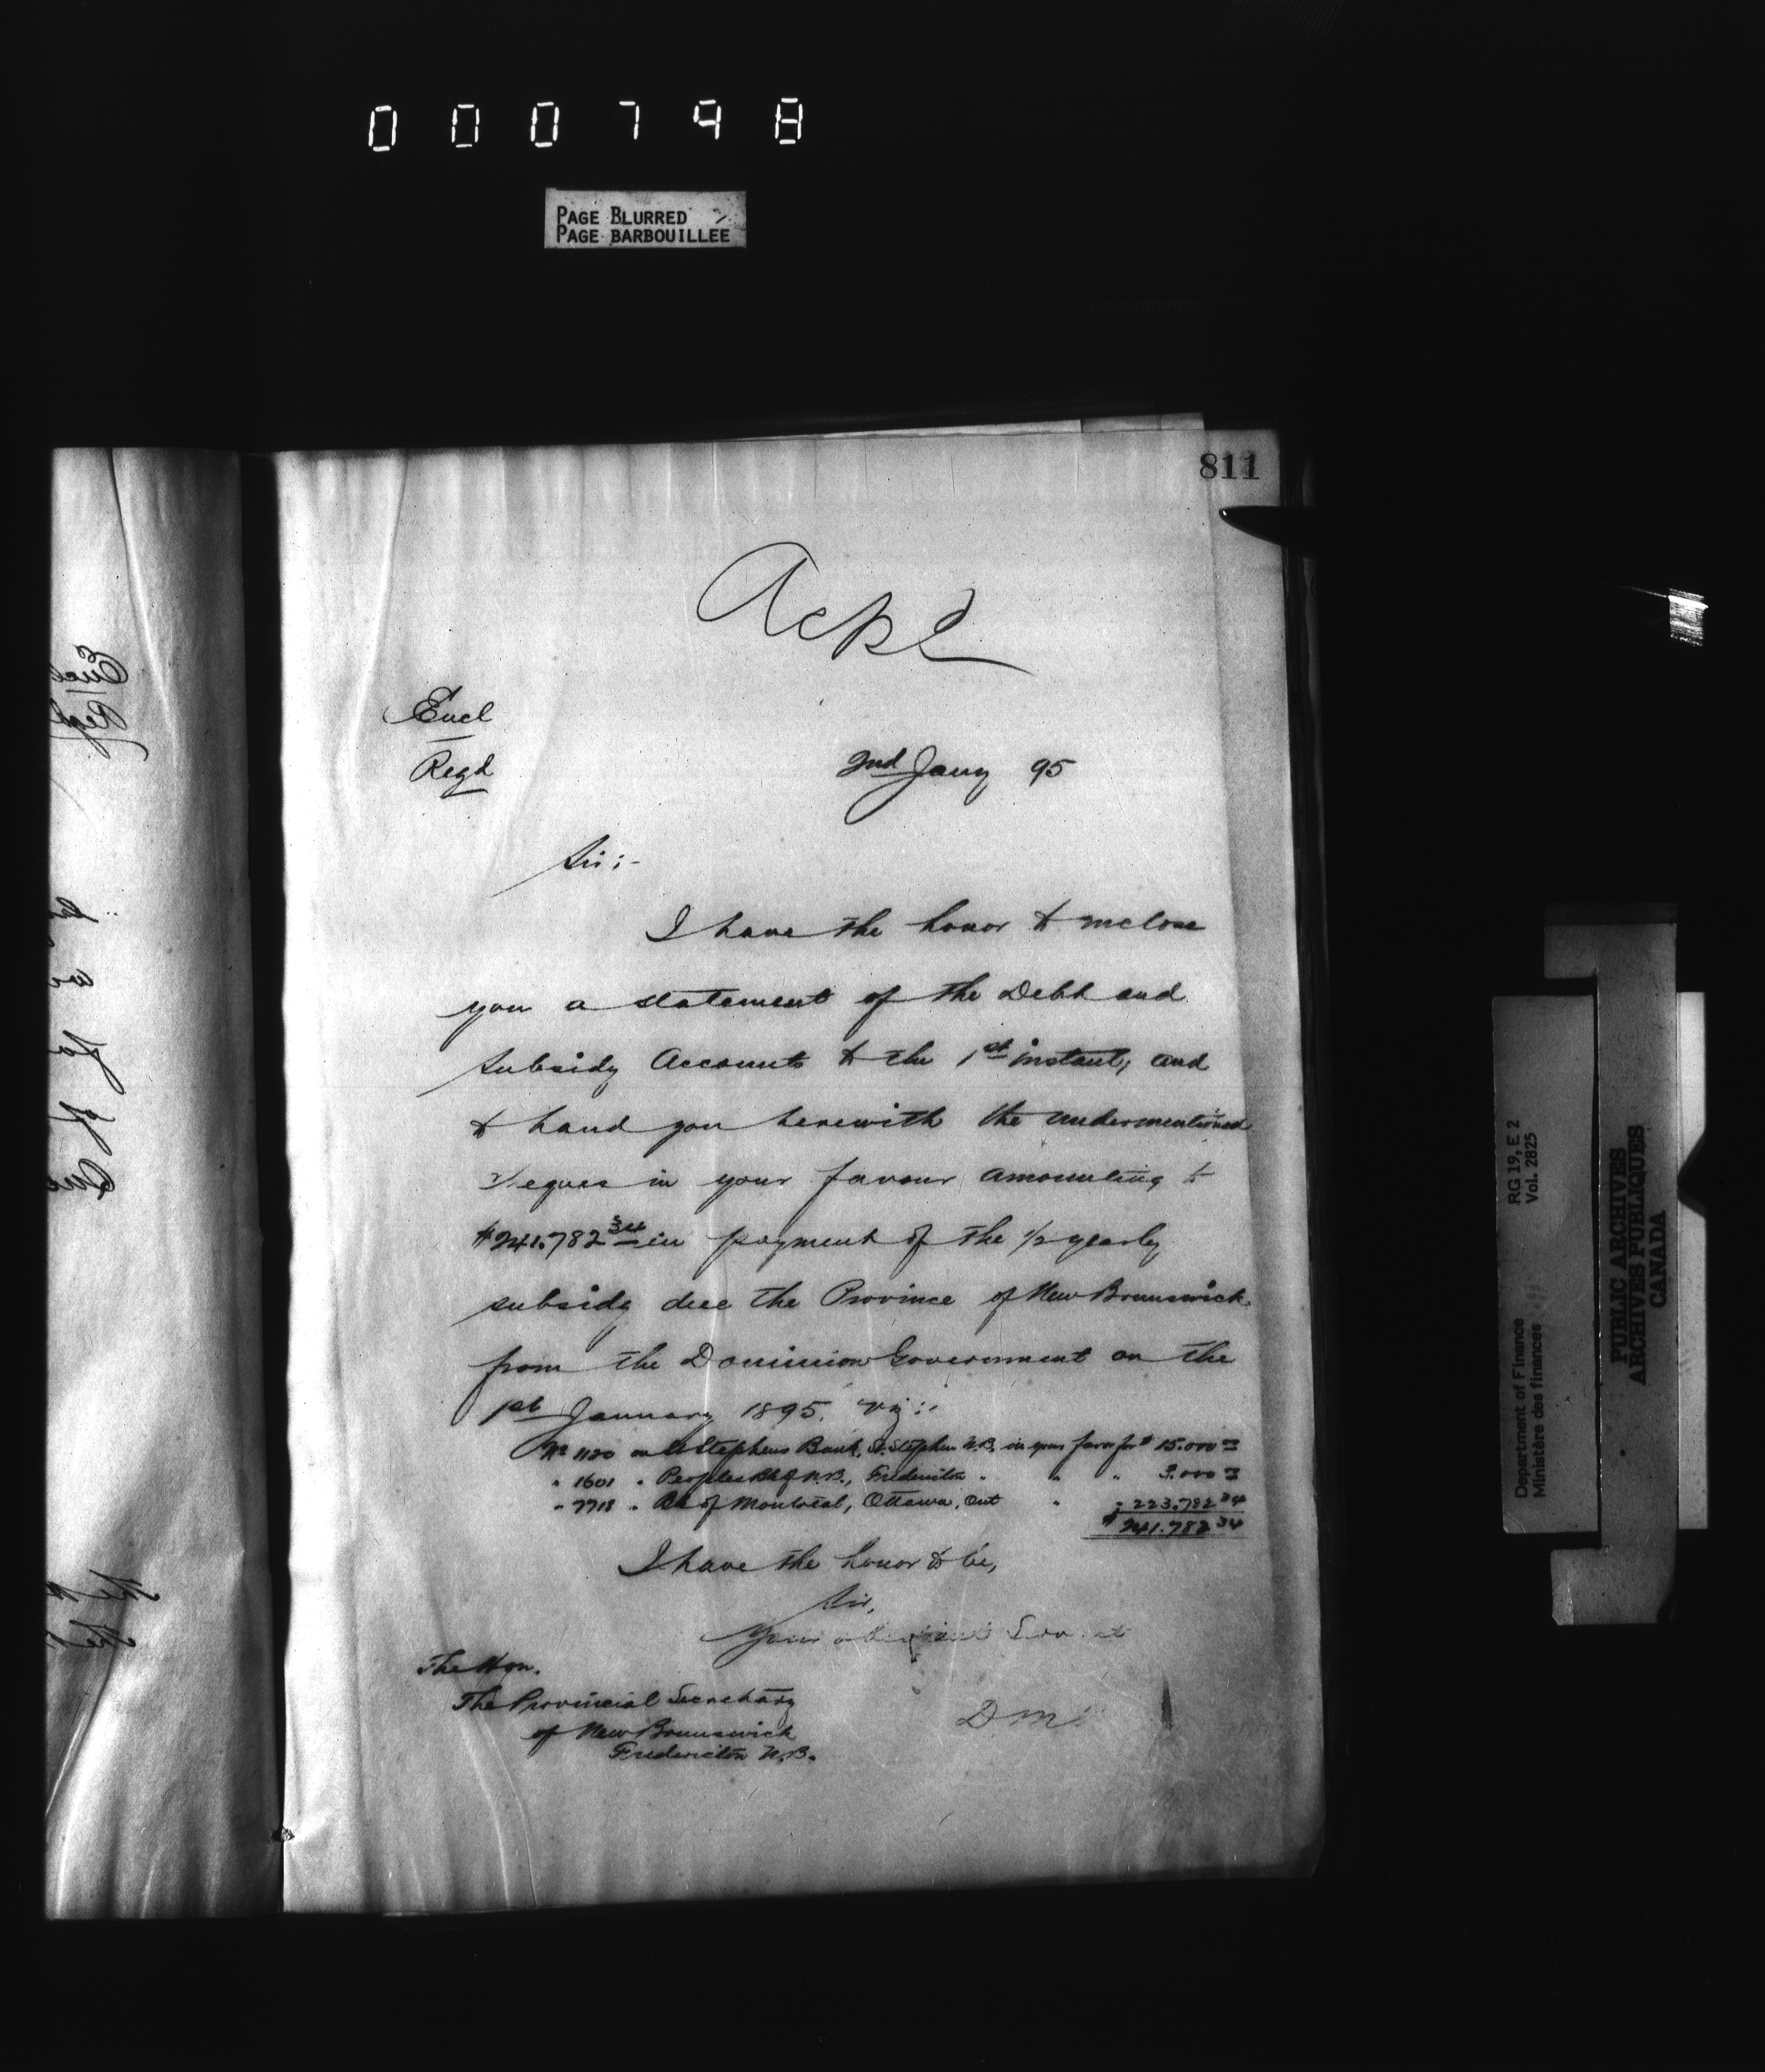 000798
PAGE BLURRED
PAGE BARBOUILLÉE
811
Ackd
Encl
Regd
2nd Jany 95
Sir:-
I have the honor to inclose
you a statement of the Debt and
Subsidy Accounts to the 1st instant, and
to hand you herewith the undermentioned
cheques in your favour amounting to
$241.782 34 in payment of the 1/2 yearly
subsidy due the Province of New Brunswick
from the Dominion Government on the
1st January 1895, viz:-
No 1120 on St Stephens Bank, St. Stephen N.B. in your favor for $ 15.000 00
" 1601 " Peoples Bk of N.B., Fredericton " " " 3.000 00
" 7718 " Bk of Montreal, Ottawa, Ont " " 223.782 34
$ 241.782 34
I have the honor to be,
Sir,
Your obedient Servant
The Hon.
The Provincial Secretary
of New Brunswick
Fredericton N.B.
D M
RG 19, E 2
Vol. 2825
Department of Finance
Ministère des finances
PUBLIC ARCHIVES
ARCHIVES PUBLIQUES
CANADA